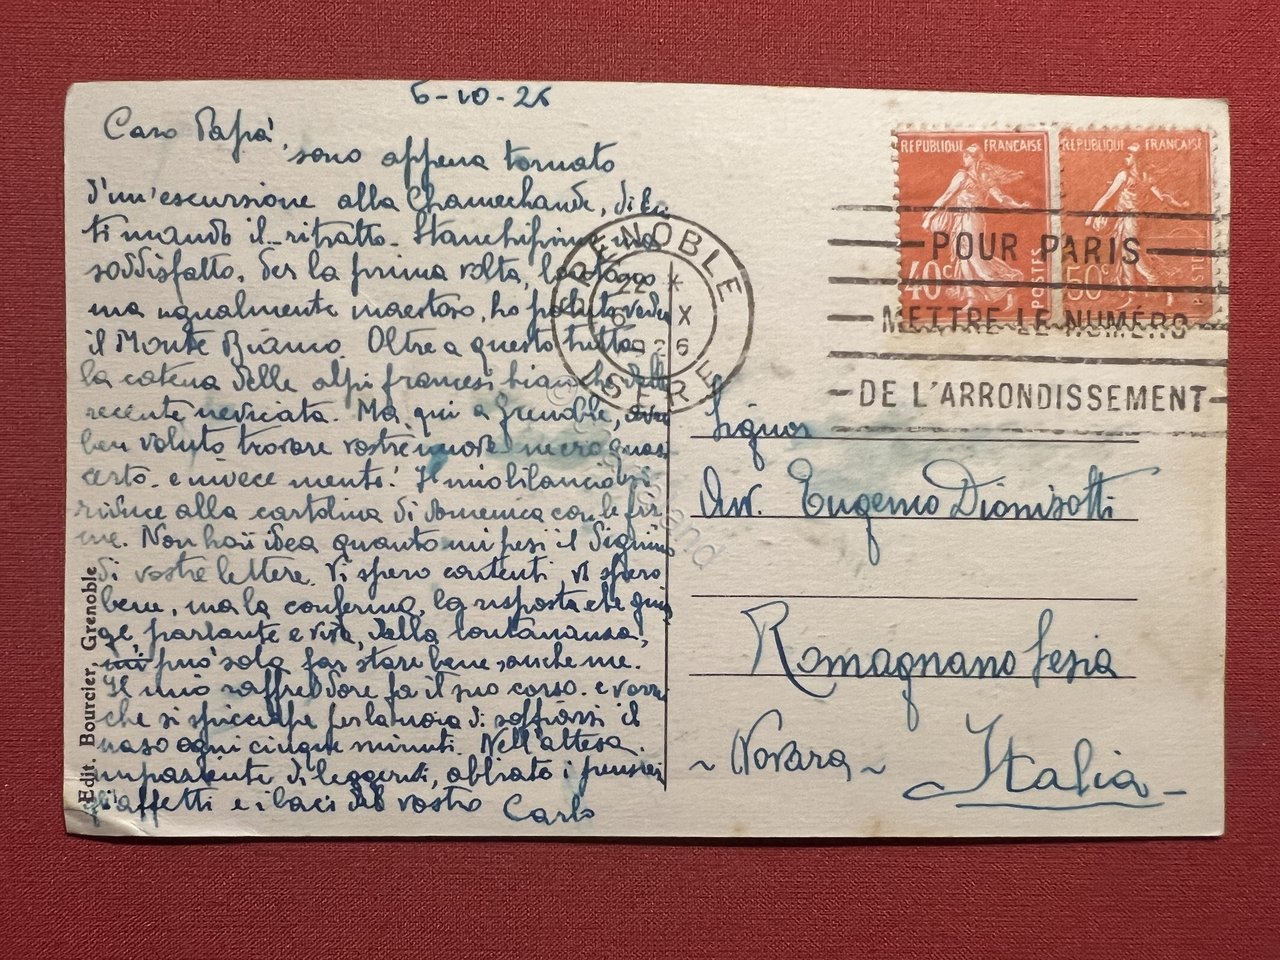 6-10-26
Caro Papà,
sono appena tornato
d'un'escursione alla Chamechaude, di cui
ti mando il... ritratto. Stanchissimo ma
soddisfatto. Per la prima volta, lontano
ma ugualmente maestoso, ho potuto vedere
il Monte Bianco. Oltre a questo tutta
la catena delle alpi francesi bianche della
recente nevicata. Ma qui a Grenoble, avrei
ben voluto trovare vostre nuove
certo. e invece niente! Il mio bilancio si
riduce alla cartolina di domenica con le fir-
me. Non hai idea quanto mi pesi il digiuno
di vostre lettere. Vi spero contenti, vi spero
bene, ma la conferma, la risposta che giun-
ge, parlante e viva, dalla lontananza,
può solo far stare bene, anche me.
Il mio raffreddore fa il suo corso. e vorrei
che si spicciasse per la noia di soffiarsi il
naso ogni cinque minuti. Nell'attesa
impaziente di leggerti, abbiate i pensieri
gli affetti e i baci del vostro Carlo
Edit. Bourcier, Grenoble
GRENOBLE
22 *
6 X
26
ISERE
REPUBLIQUE FRANÇAISE
40c POSTES
REPUBLIQUE FRANÇAISE
50c
POUR PARIS
METTRE LE NUMÉRO
DE L'ARRONDISSEMENT
Signor
Avv. Eugenio Dionisotti
Romagnano Sesia
~ Novara ~
Italia -